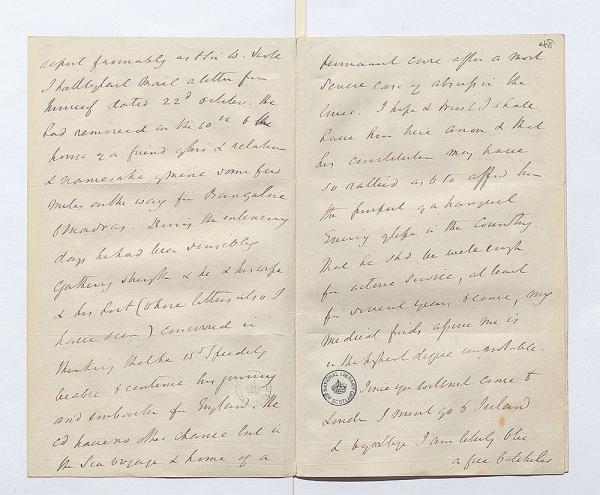 report favorably as to
I had by last Mail a letter from
himself dated 22d October. He
had removed on the 10th to the
house of a friend of his & relation
& namesake of mine some few
miles on the way from Bangalore
to Madras. During the intervening
days he had been sensibly
gathering strength & he & his wife
& his Doct (whose letters also I
have seen) concurred in
thinking that he wd speedily
be able to continue his journey
and embark for England. He
cd have no other chance but in
the Sea voyage & home of a
48
permanent cure after a most
severe case of abscess in the
liver. I hope & trust I shall
have him here anon & that
his constitution may have
so rallied as to afford him
the prospect of a tranquil
Evening of life in the Country.
That he shd be well enough
for active service, at least
for several years to come, my
Medical friends assure me is
in the highest degree improbable.
NATIONAL LIBRARY OF SCOTLAND
Since you will not come to
London I must go to Ireland
& by I am likely to be
a free batchelor